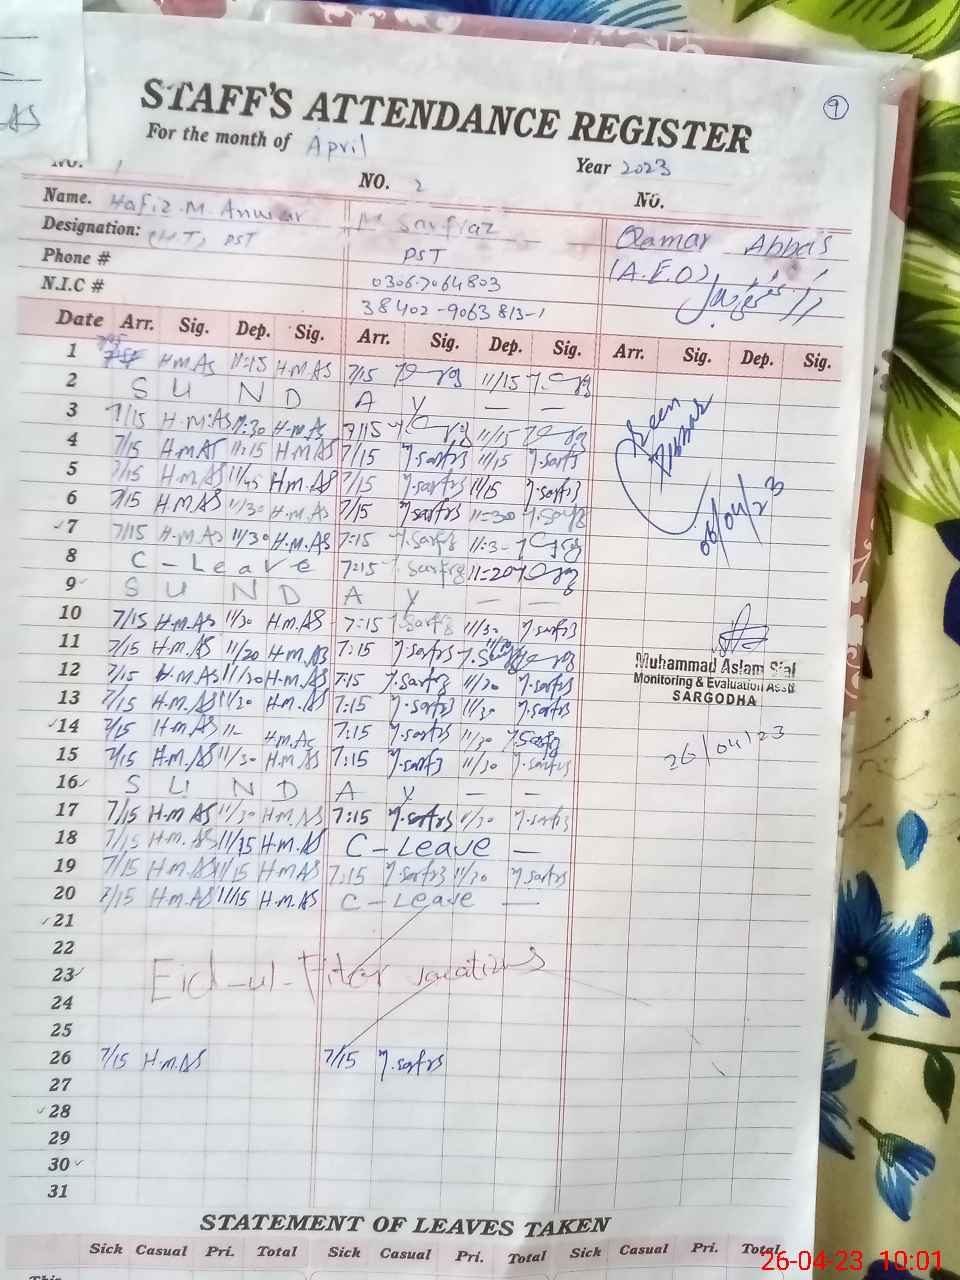 9
STAFF'S ATTENDANCE REGISTER
For the month of April Year 2023
NO. 1 NO. 2 NO.
Name. Hafiz.M.Anwar M Sarfraz Qamar Abbas
Designation: (H.T) PST PST (A.E.O)
Phone # 0306-7064803
N.I.C # 38402-9063813-1
Date Arr. Sig. Dep. Sig. Arr. Sig. Dep. Sig. Arr. Sig. Dep. Sig.
1 H.M.AS 11:15 H.M.AS 7/15 11/15
2 S U N D A Y — —
3 7/15 H.M.AS 11:30 H.M.AS 7/15 11/15
4 7/15 H.M.AS 11:15 H.M.AS 7/15 11/15
5 7/15 H.M.AS 11/45 H.M.AS 7/15 11/15
6 7/15 H.M.AS 11/30 H.M.AS 7/15 11=30
7 7/15 H.M.AS 11/30 H.M.AS 7:15
8 C - Leave 7:15 11=20
9 S U N D A Y — —
10 7/15 H.M.AS 11/30 H.M.AS 7:15 11/30
11 7/15 H.M.AS 11/20 H.M.AS 7:15
12 7/15 H.M.AS 11/30 H.M.AS 7:15 11/30
13 7/15 H.M.AS 11/30 H.M.AS 7:15 11/30
14 7/15 H.M.AS 11- H.M.AS 7:15 11/30
15 7/15 H.M.AS 11/30 H.M.AS 7:15 11/30
16 S U N D A Y — —
17 7/15 H.M.AS 11/30 H.M.AS 7:15 11/30
18 7/15 H.M.AS 11/35 H.M.AS C - Leave —
19 7/15 H.M.AS 11/15 H.M.AS 7:15 11/30
20 7/15 H.M.AS 11/15 H.M.AS C - Leave —
21
22
23 Eid-ul-Fiter
24
25
26 7/15 H.M.AS 7/15
27
28
29
30
31
Seen
06/04/23
Muhammad Aslam Sial
Monitoring & Evaluation Asstt
SARGODHA
26/04/23
STATEMENT OF LEAVES TAKEN
Sick Casual Pri. Total Sick Casual Pri. Total Sick Casual Pri. Total
26-04-23 10:01